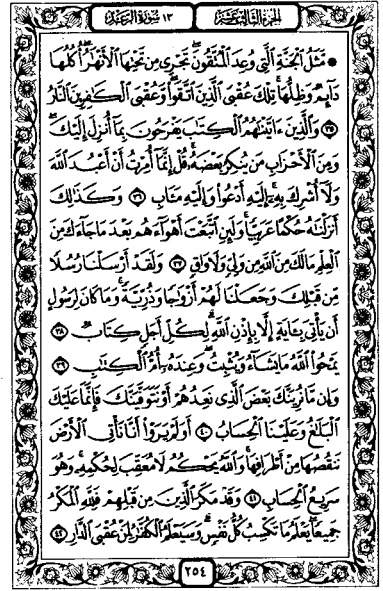 الجزء الثالث عشر ١٣ سورة الرعد
۞ مَّثَلُ ٱلْجَنَّةِ ٱلَّتِى وُعِدَ ٱلْمُتَّقُونَ ۖ تَجْرِى مِن تَحْتِهَا ٱلْأَنْهَٰرُ ۖ أُكُلُهَا
دَآئِمٌ وَظِلُّهَا ۚ تِلْكَ عُقْبَى ٱلَّذِينَ ٱتَّقَوا۟ ۖ وَّعُقْبَى ٱلْكَٰفِرِينَ ٱلنَّارُ
٣٥ وَٱلَّذِينَ ءَاتَيْنَٰهُمُ ٱلْكِتَٰبَ يَفْرَحُونَ بِمَآ أُنزِلَ إِلَيْكَ ۖ
وَمِنَ ٱلْأَحْزَابِ مَن يُنكِرُ بَعْضَهُۥ ۚ قُلْ إِنَّمَآ أُمِرْتُ أَنْ أَعْبُدَ ٱللَّهَ
وَلَآ أُشْرِكَ بِهِۦٓ ۚ إِلَيْهِ أَدْعُوا۟ وَإِلَيْهِ مَـَٔابِ ٣٦ وَكَذَٰلِكَ
أَنزَلْنَٰهُ حُكْمًا عَرَبِيًّا ۚ وَلَئِنِ ٱتَّبَعْتَ أَهْوَآءَهُم بَعْدَ مَا جَآءَكَ مِنَ
ٱلْعِلْمِ مَا لَكَ مِنَ ٱللَّهِ مِن وَلِىٍّ وَلَا وَاقٍ ٣٧ وَلَقَدْ أَرْسَلْنَا رُسُلًا
مِّن قَبْلِكَ وَجَعَلْنَا لَهُمْ أَزْوَٰجًا وَذُرِّيَّةً ۚ وَمَا كَانَ لِرَسُولٍ
أَن يَأْتِىَ بِـَٔايَةٍ إِلَّا بِإِذْنِ ٱللَّهِ ۗ لِكُلِّ أَجَلٍ كِتَابٌ ٣٨
يَمْحُوا۟ ٱللَّهُ مَا يَشَآءُ وَيُثْبِتُ ۖ وَعِندَهُۥٓ أُمُّ ٱلْكِتَٰبِ ٣٩
وَإِن مَّا نُرِيَنَّكَ بَعْضَ ٱلَّذِى نَعِدُهُمْ أَوْ نَتَوَفَّيَنَّكَ فَإِنَّمَا عَلَيْكَ
ٱلْبَلَٰغُ وَعَلَيْنَا ٱلْحِسَابُ ٤٠ أَوَلَمْ يَرَوْا۟ أَنَّا نَأْتِى ٱلْأَرْضَ
نَنقُصُهَا مِنْ أَطْرَافِهَا ۚ وَٱللَّهُ يَحْكُمُ لَا مُعَقِّبَ لِحُكْمِهِۦ ۚ وَهُوَ
سَرِيعُ ٱلْحِسَابِ ٤١ وَقَدْ مَكَرَ ٱلَّذِينَ مِن قَبْلِهِمْ فَلِلَّهِ ٱلْمَكْرُ
جَمِيعًا ۖ يَعْلَمُ مَا تَكْسِبُ كُلُّ نَفْسٍ ۗ وَسَيَعْلَمُ ٱلْكُفَّٰرُ لِمَنْ عُقْبَى ٱلدَّارِ ٤٢
٢٥٤